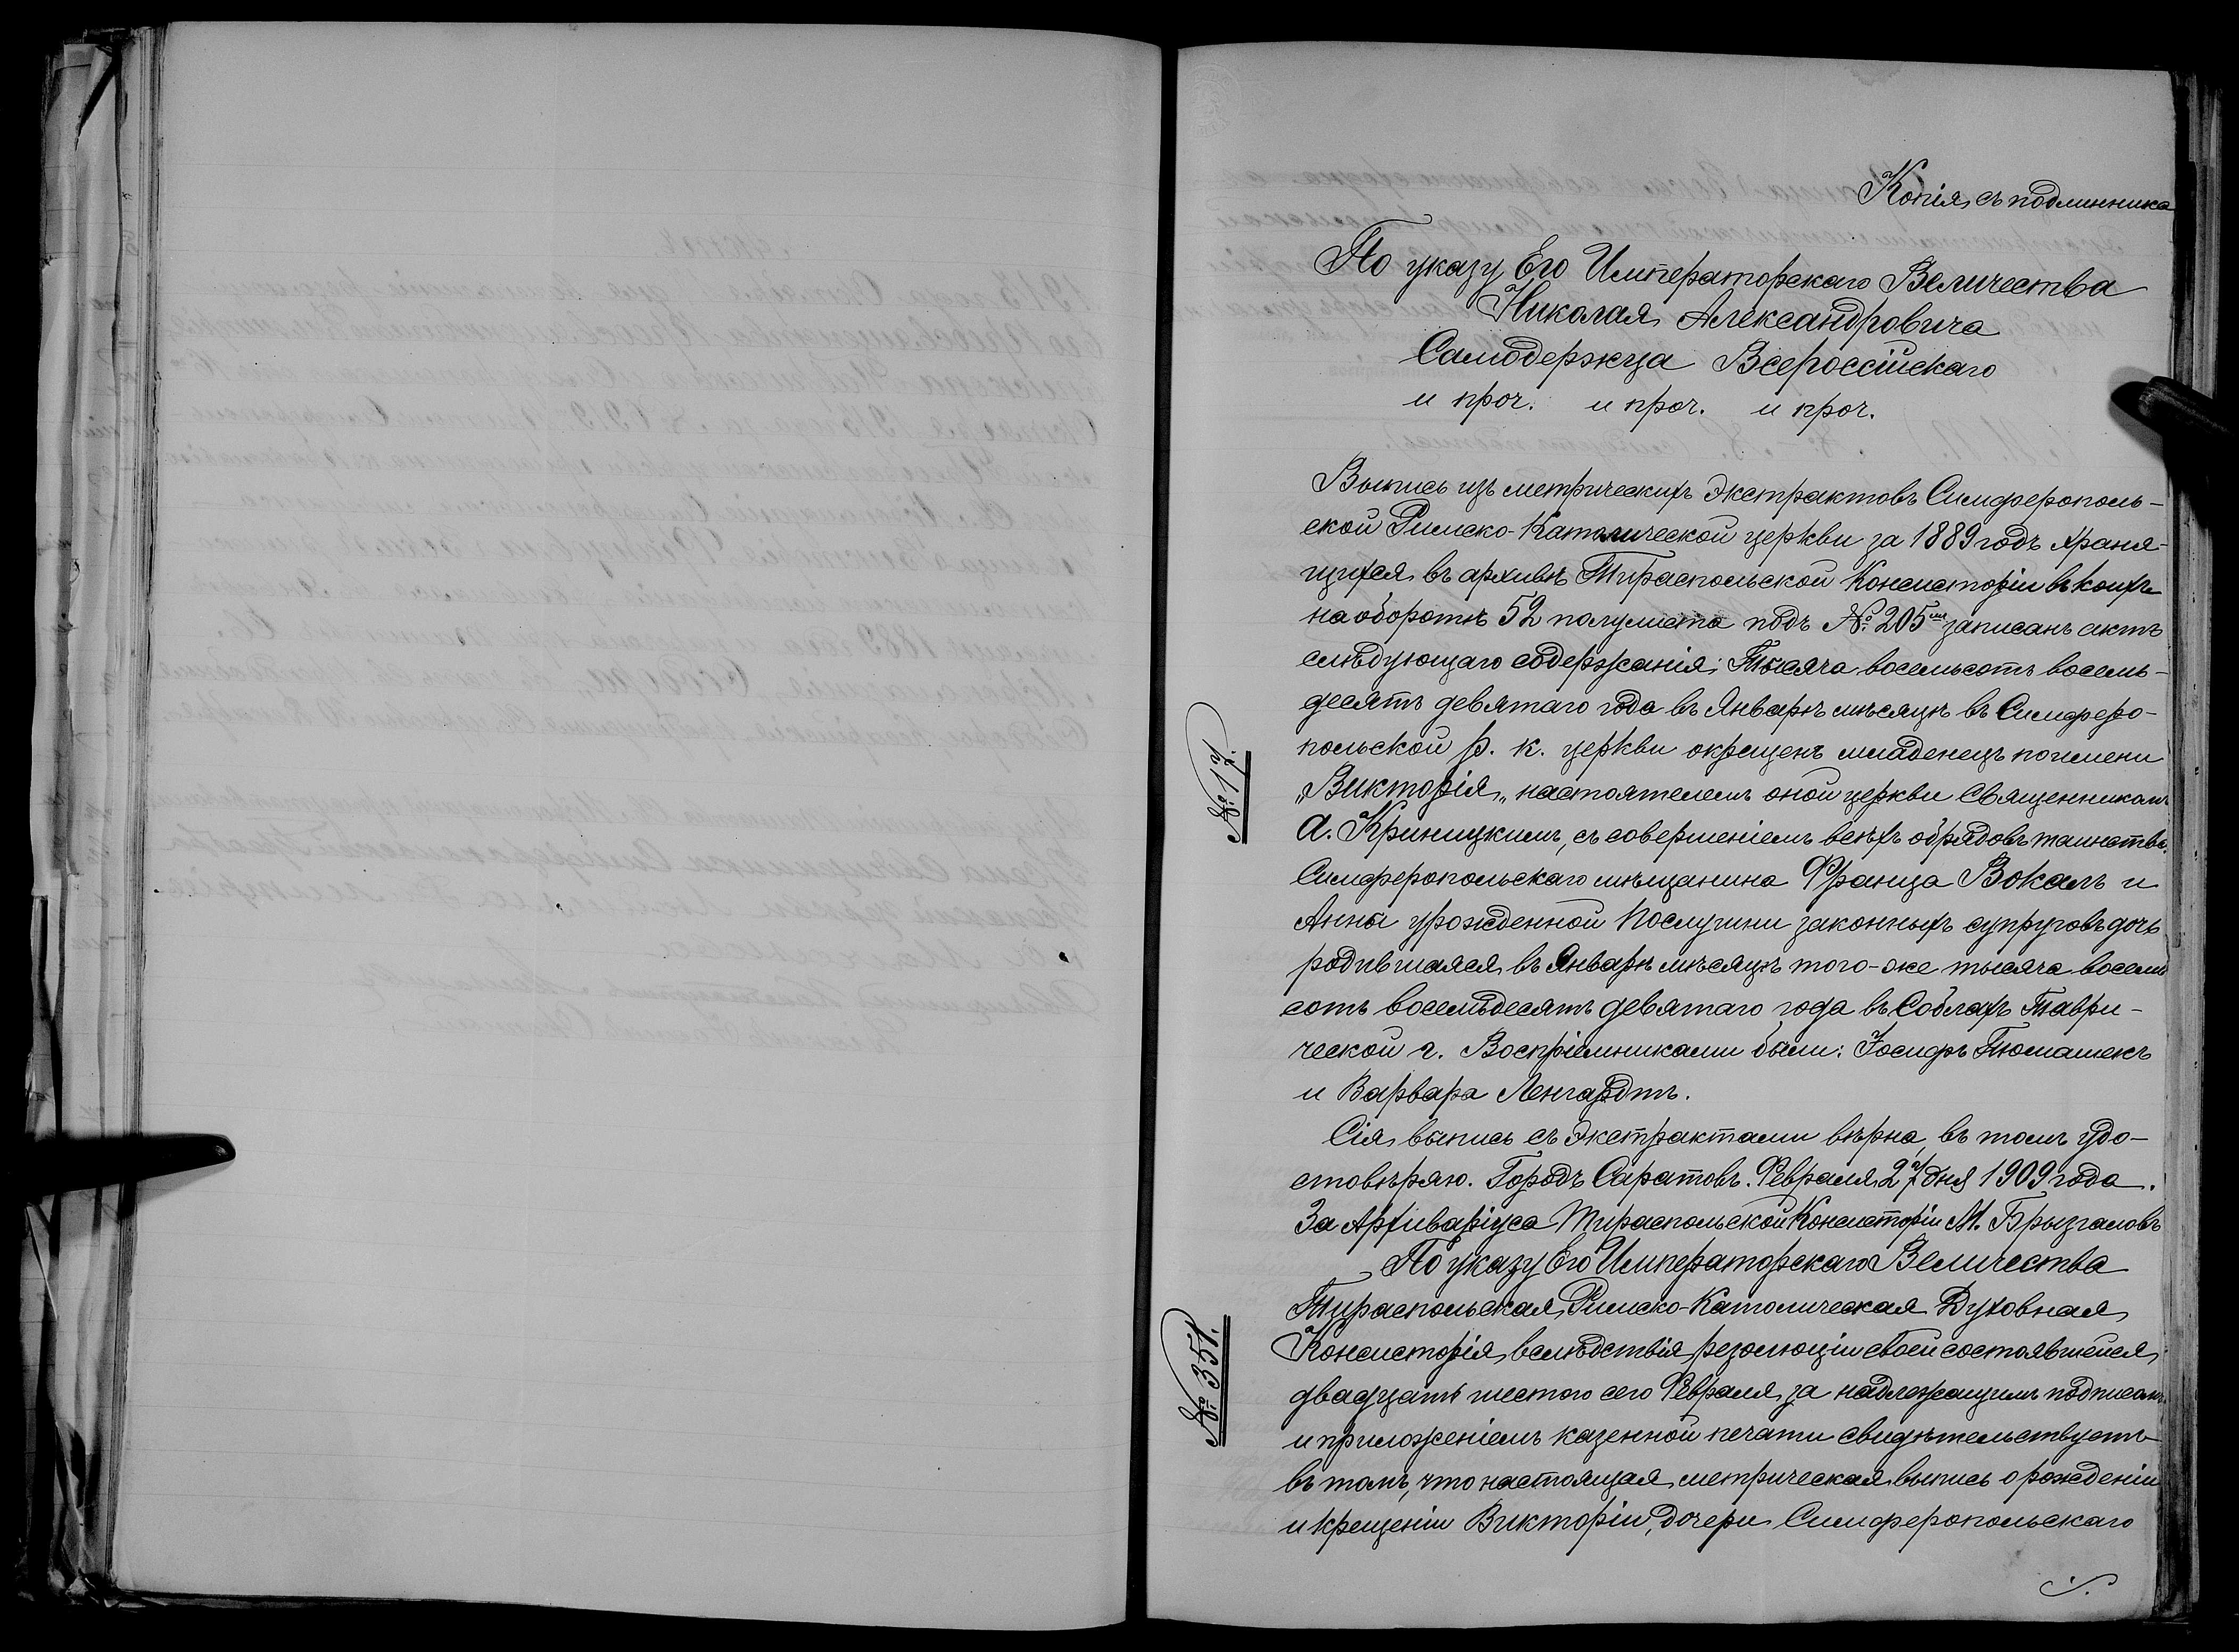 Копія съ подлинника
По указу Его Императорскаго Величества
Николая Александровича
Самодержца Всероссійскаго
и проч. и проч. и проч.
Выпись изъ метрическихъ экстрактовъ Симферополь-
ской Римско-Католической церкви за 1889 годъ храня-
щихся въ архивѣ Тираспольской Консисторіи въ коихъ
на оборотѣ 52 полулиста подъ № 205мъ записанъ актъ
слѣдующаго содержанія: Тысяча восемьсотъ восемь-
десятъ девятаго года въ Январѣ мѣсяцѣ въ Симферо-
польской р. к. церкви окрещенъ младенецъ по имени
„Викторія„ настоятелемъ оной церкви Священникомъ
А. Криницкимъ, съ совершеніемъ всѣхъ обрядовъ таинства.
Симферопольскаго мѣщанина Франца Вокалъ и
Анна урожденной Послушни законныхъ супруговъ дочь
родившаяся въ Январѣ мѣсяцѣ того-же тысяча восемь
сотъ восемьдесятъ девятаго года въ Соблахъ Таври-
ческой г. Воспріемниками были: Іосифъ Тюмашекъ
и Варвара Ленгардтъ.
Сія выпись съ экстрактами вѣрна, въ томъ удо-
стовѣряю. Городъ Саратовъ. Февраля 27 дня 1909 года.
За Архиваріуса Тираспольской Консисторіи М. Брызгаловъ
По указу Его Императорскаго Величества
Тираспольская Римско-Католическая Духовная
Консисторія, вслѣдствія резолюціи своей состоявшейся
двадцать шестого сего Февраля, за надлежащимъ подписомъ
и приложеніемъ казенной печати свидѣтельствуетъ
въ томъ, что настоящая метрическая выпись о рожденіи
и крещеніи Викторіи, дочери Симферопольскаго
№ 17.
№ 351.